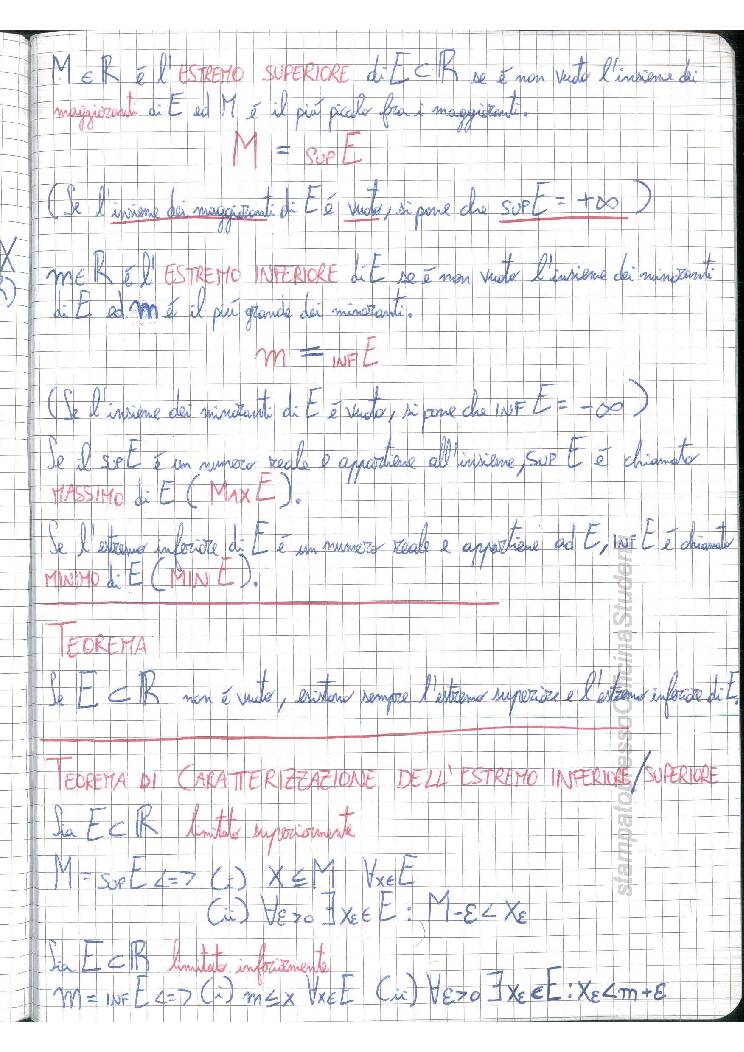 M ∈ ℝ é l'ESTREMO SUPERIORE di E ⊂ ℝ se é non vuoto l'insieme dei
maggioranti di E ed M é il piú picolo fra i maggioranti.
M = SUP E
(Se l'insieme dei maggioranti di E é vuoto, si pone che SUP E = +∞)
m ∈ ℝ é l'ESTREMO INFERIORE di E se é non vuoto l'insieme dei minoranti
di E ed m é il piú grande dei minoranti.
m = INF E
(Se l'insieme dei minoranti di E é vuoto, si pone che INF E = -∞)
Se il SUP E é un numero reale e appartiene all'insieme, SUP E é chiamato
MASSIMO di E (MAX E).
Se l'estremo inferiore di E é un numero reale e appartiene ad E, INF E é chiamato
MINIMO di E (MIN E).
TEOREMA
Se E ⊂ ℝ non é vuoto, esistono sempre l'estremo superiore e l'estremo inferiore di E.
TEOREMA DI CARATTERIZZAZIONE DELL'ESTREMO INFERIORE/SUPERIORE
Sia E ⊂ ℝ limitato superiormente
M = SUP E <=> (i) x ≤ M ∀x∈E
(ii) ∀ε>0 ∃ xε ∈ E : M-ε < xε
Sia E ⊂ ℝ limitato inferiormente
m = INF E <=> (i) m ≤ x ∀x∈E (ii) ∀ε>0 ∃ xε ∈ E : xε < m+ε